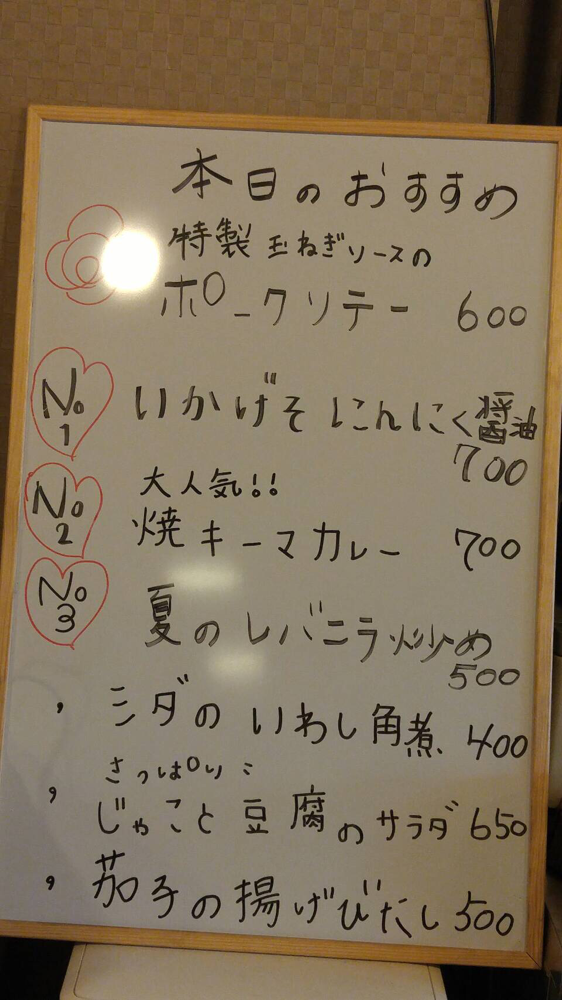 本日のおすすめ
特製 玉ねぎソースの
ポークソテー 600
No1 いかげそ にんにく醤油
700
大人気!!
No2 焼キーマカレー 700
No3 夏のレバニラ炒め
500
, シダの いわし角煮 400
さっぱり:
, じゃこと豆腐のサラダ 650
, 茄子の揚げびたし 500